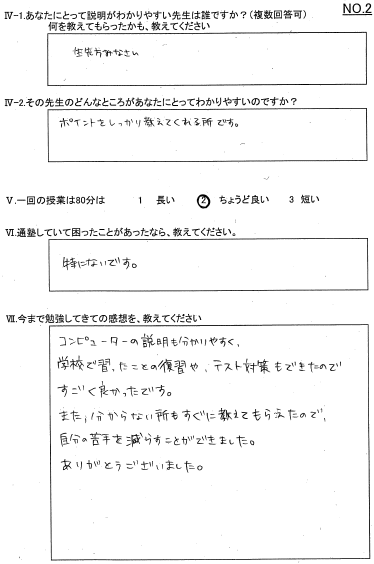 NO.2
Ⅳ-1.あなたにとって説明がわかりやすい先生は誰ですか？(複数回答可)
何を教えてもらったかも、教えてください
先生方みなさん
Ⅳ-2.その先生のどんなところがあなたにとってわかりやすいのですか？
ポイントをしっかり教えてくれる所です。
Ⅴ.一回の授業は80分は 1 長い 2 ちょうど良い 3 短い
Ⅵ.通塾していて困ったことがあったなら、教えてください。
特にないです。
Ⅶ.今まで勉強してきての感想を、教えてください
コンピューターの説明も分かりやすく、
学校で習ったことの復習や、テスト対策もできたので
すごく良かったです。
また、分からない所もすぐに教えてもらえたので、
自分の苦手を減らすことができました。
ありがとうございました。